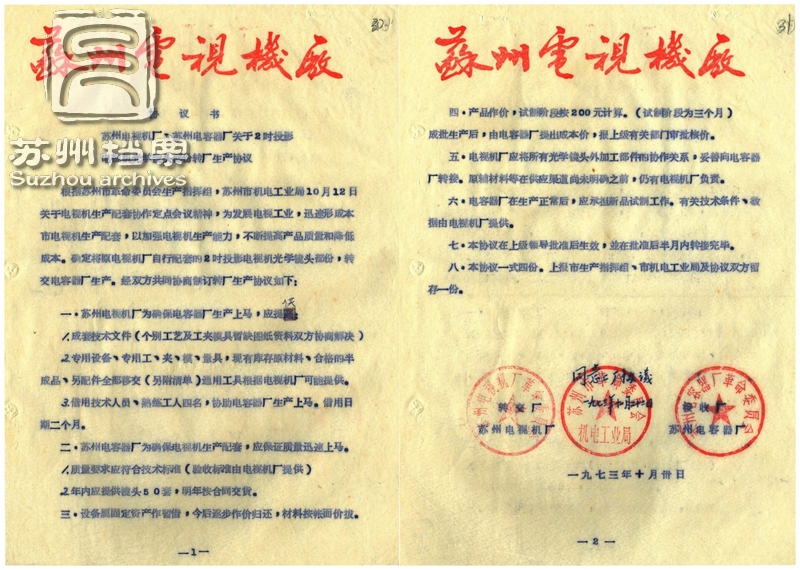 蘇州電視機廠
协议书
苏州电视机厂、苏州电容器厂关于2吋投影
转厂生产协议
苏州档案
Suzhou archives
根据苏州市革命委员会生产指挥组，苏州市机电工业局10月12日
关于电视机生产配套协作定点会议精神，为发展电视工业，迅速形成本
市电视机生产配套，以加强电视机生产能力，不断提高产品质量和降低
成本。确定将原电视机厂自行配套的2吋投影电视机光学镜头部份，转
交电容器厂生产。经双方共同协商制订转厂生产协议如下：
一·苏州电视机厂为确保电容器厂生产上马，应提供
1.成套技术文件（个别工艺及工夹模具暂缺图纸资料双方协商解决）
2.专用设备、专用工、夹、模、量具，现有库存原材料、合格的半
成品、另配件全部移交（另附清单）通用工具根据电视机厂可能提供。
3.借用技术人员、熟练工人四名，协助电容器厂生产上马。借用日
期二个月。
二·苏州电容器厂为确保电视机生产配套，应保证质量迅速上马。
1.质量要求应符合技术标准（验收标准由电视机厂提供）
2.年内应提供镜头50套，明年按合同交货。
三·设备属固定资产作暂借，今后逐步作价归还，材料按帐面价拨。
—1—
蘇州電視機廠
31
四·产品作价，试制阶段按200元计算。（试制阶段为三个月）
成批生产后，由电容器厂提出成本价，报上级有关部门审批核价。
五·电视机厂应将所有光学镜头外加工部件的协作关系，妥善向电容器
厂转接。原辅材料等在供应渠道尚未明确之前，仍有电视机厂负责。
六·电容器厂在生产正常后，应承担新品试制工作。有关技术条件、数
据由电视机厂提供。
七·本协议在上级领导批准后生效，並在批准后半月内转接完毕。
八·本协议一式四份。上报市生产指挥组、市机电工业局及协议双方留
存一份。
转交厂
苏州电视机厂
机电工业局
接收厂
苏州电容器厂
一九七三年十月卅日
—2—